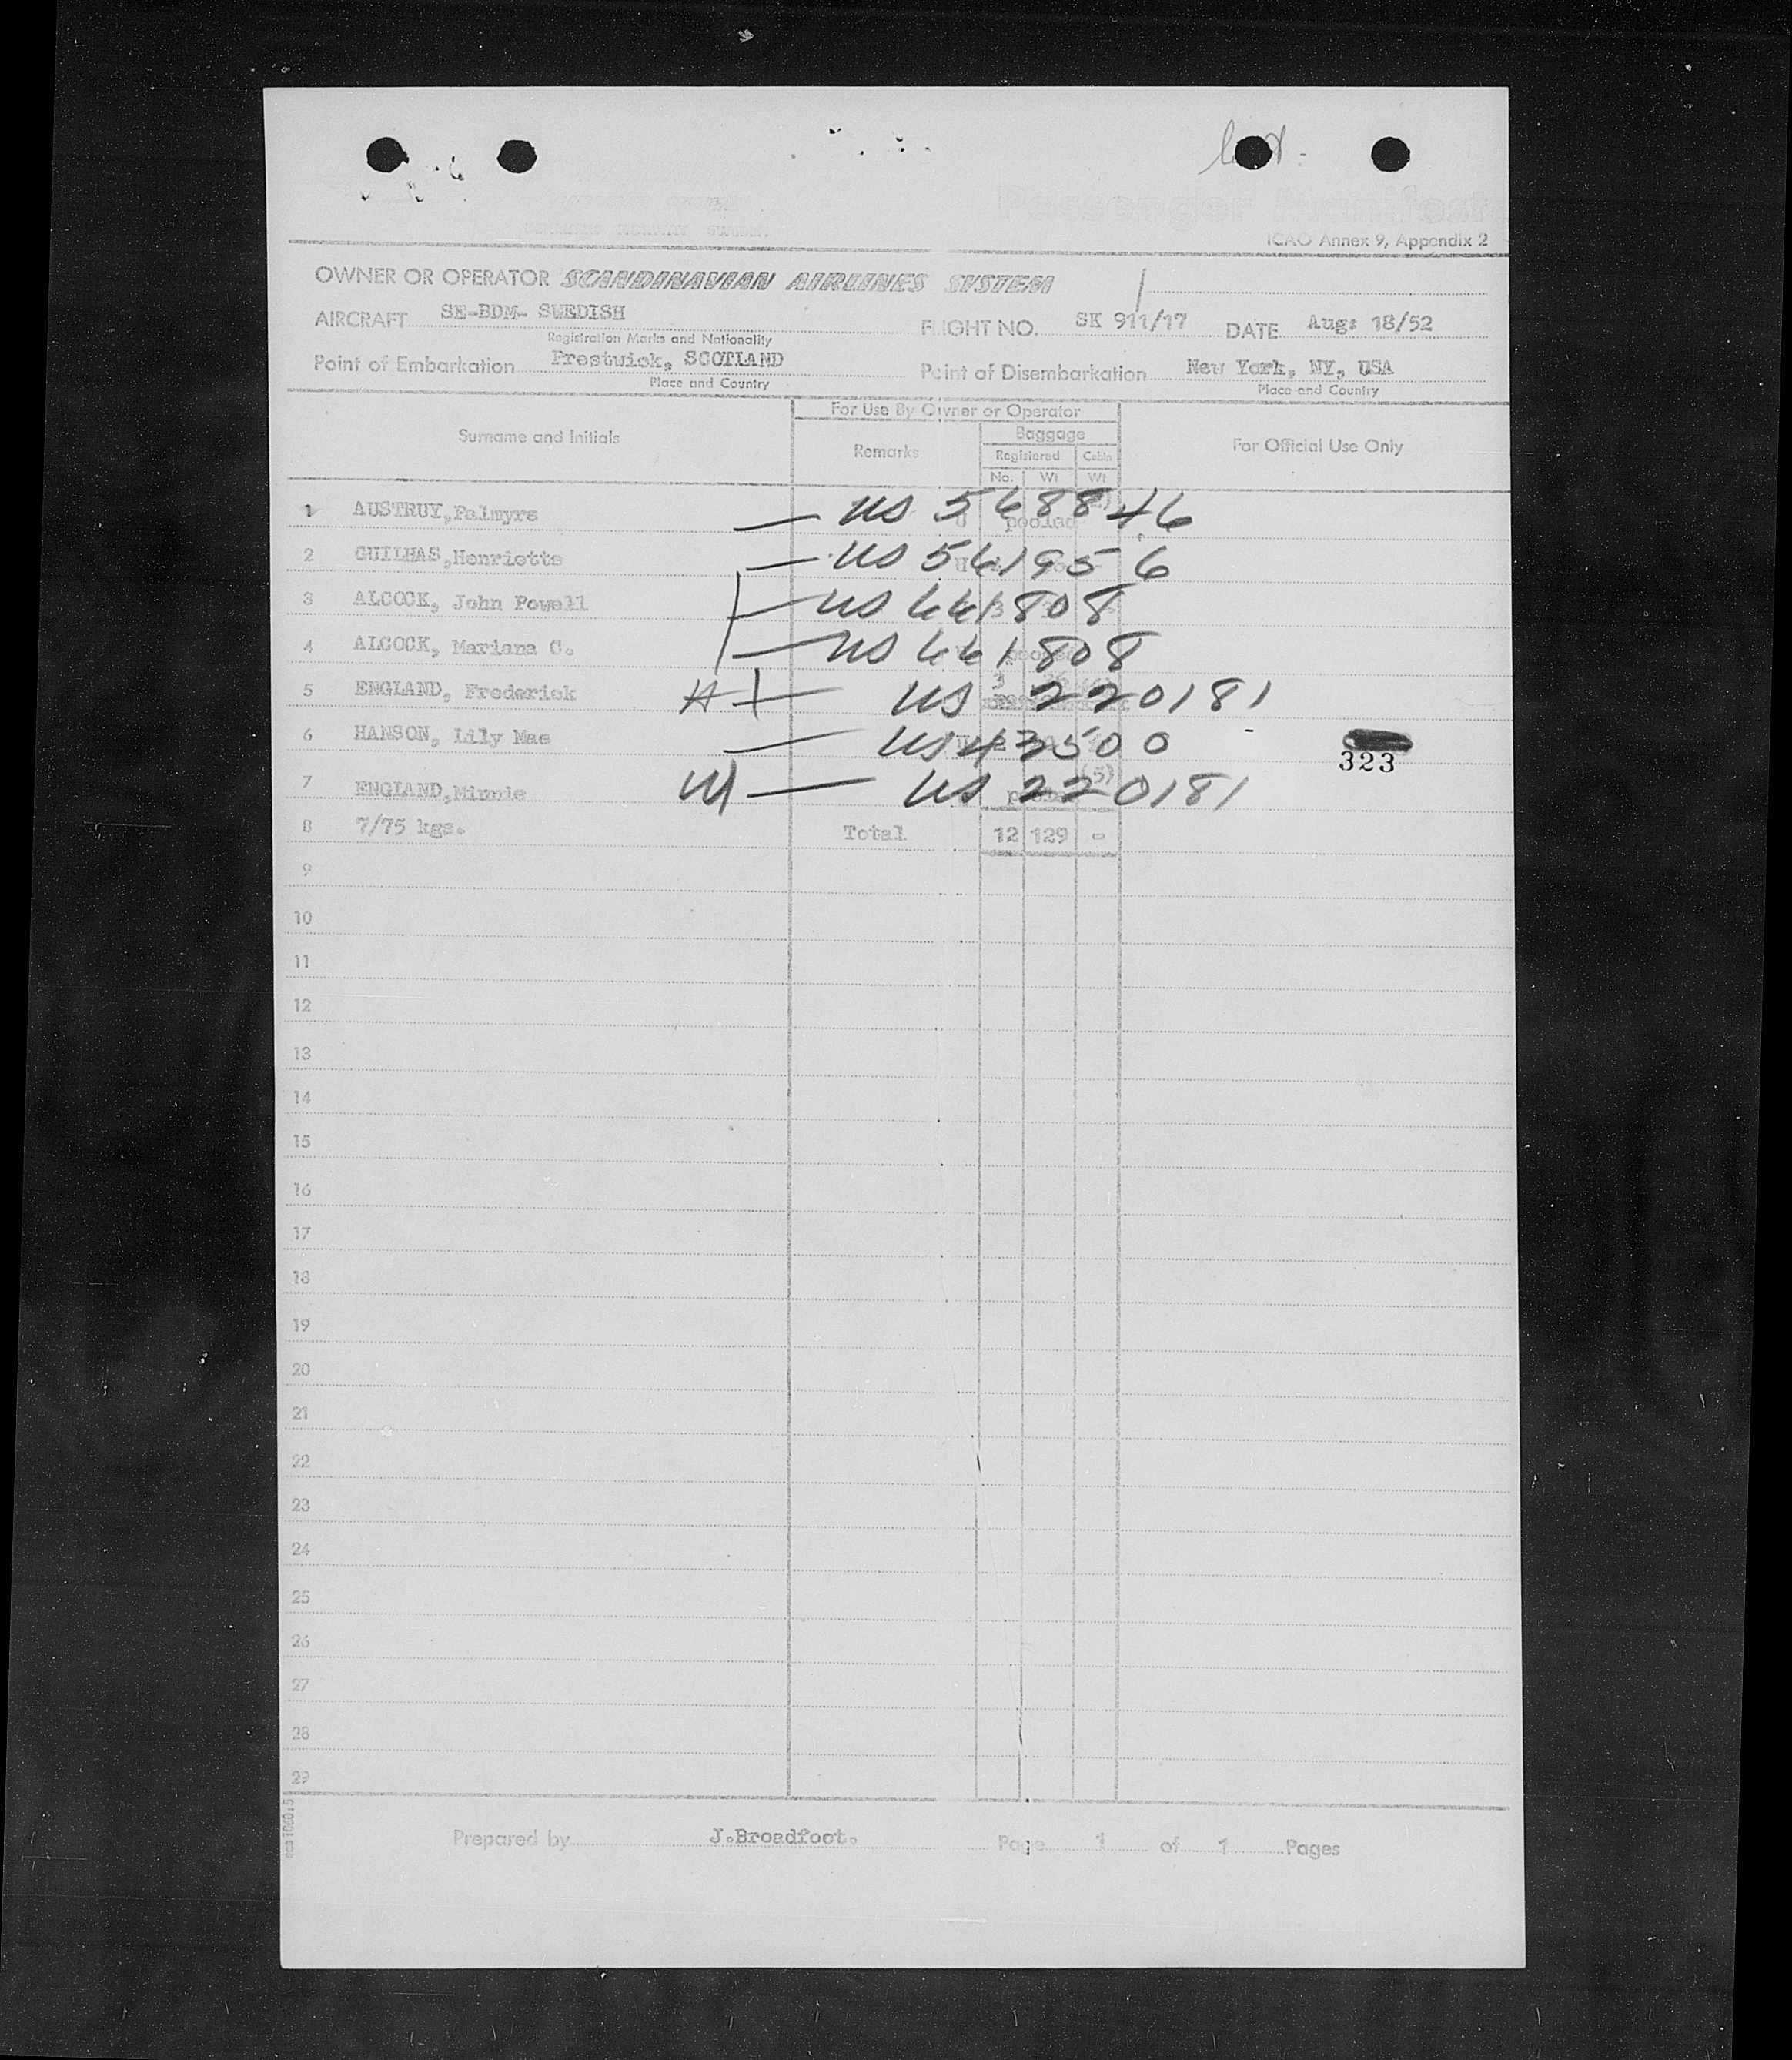 Passenger Manifest
ICAO Annex 9, Appendix 2
OWNER OR OPERATOR SCANDINAVIAN AIRLINES SYSTEM
AIRCRAFT SE-BDM- SWEDISH FLIGHT NO. SK 911/17 DATE Aug: 18/52
Registration Marks and Nationality
Point of Embarkation Prestwick, SCOTLAND Point of Disembarkation New York, NY, USA
Place and Country Place and Country
For Use By Owner or Operator
Surname and Initials Remarks Baggage For Official Use Only
Registered Cabin
No. Wt Wt
1 AUSTRUY,Palmyre US 568846 pooled
2 GUILHAS,Henriette US 561956
3 ALCOCK, John Powell US 661808
4 ALCOCK, Mariana C. US 661808
5 ENGLAND, Frederick H US 220181
6 HANSON, Lily Mae US 43500
323
7 ENGLAND,Minnie W US 220181 (5)
8 7/75 kgs. Total 12 129 -
9
10
11
12
13
14
15
16
17
18
19
20
21
22
23
24
25
26
27
28
29
Prepared by J.Broadfoot. Page 1 of 1 Pages